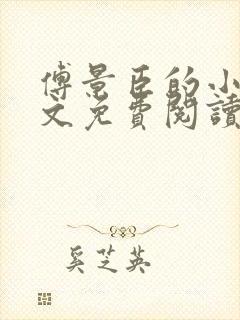 傅景臣的小
文免費閱讀
奚芝英